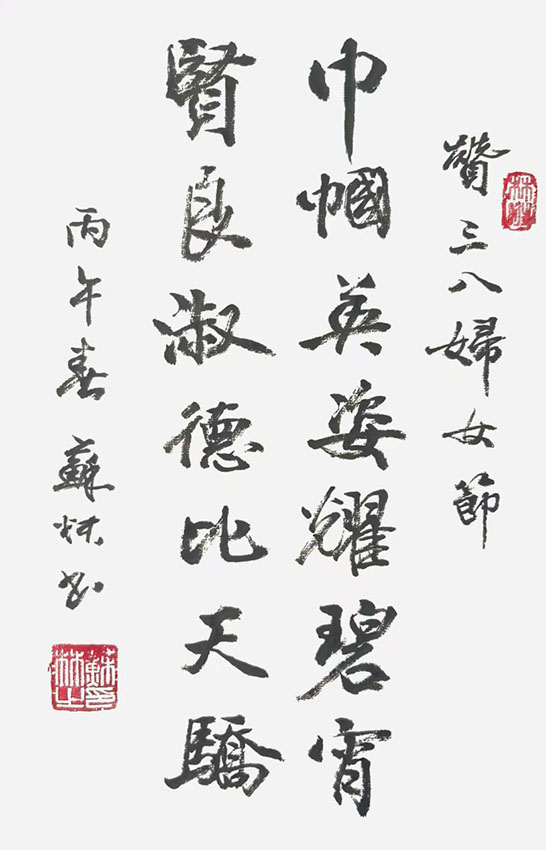 贊三八婦女節
巾幗英姿耀碧宵
賢良淑德比天驕
丙午春 蘇林书